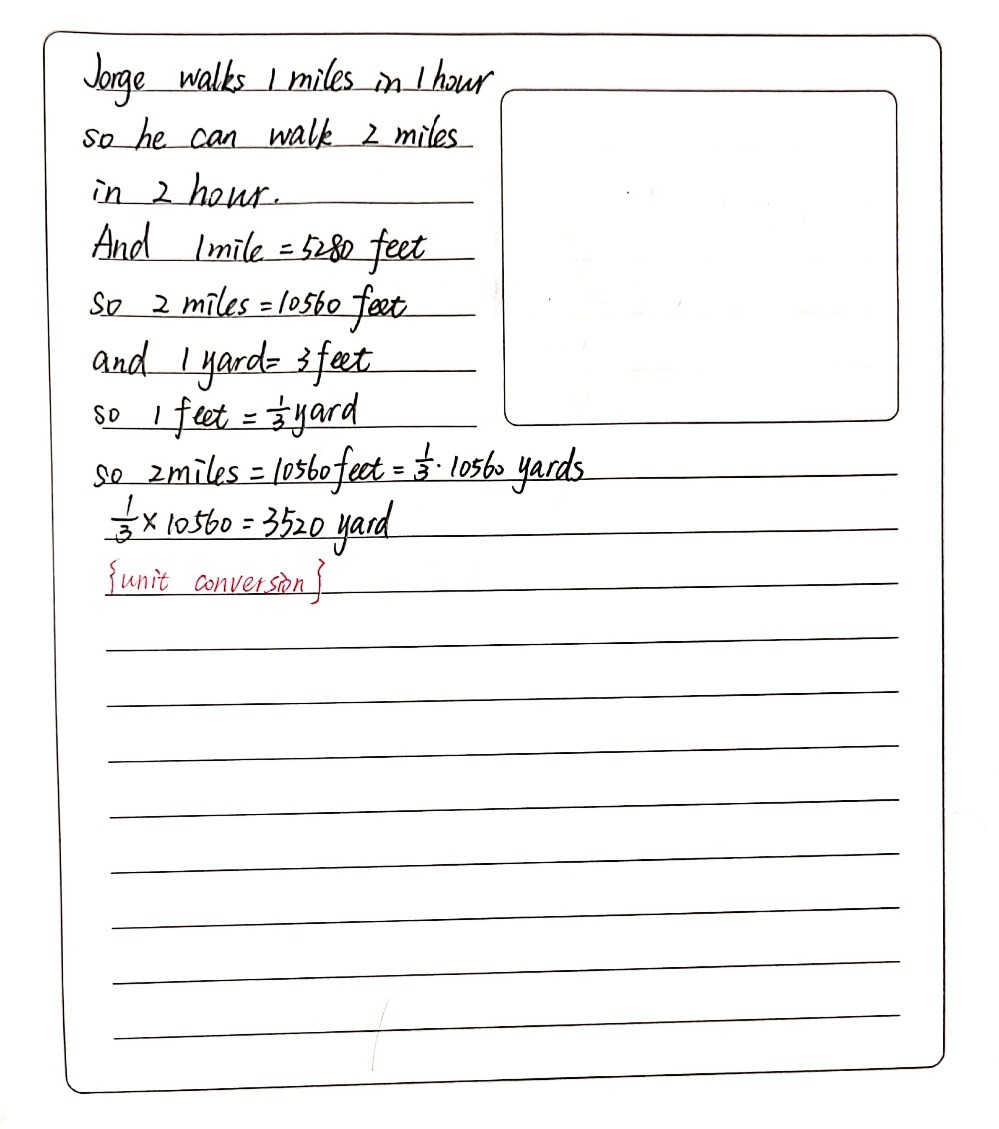 Jorge walks 1 miles in 1 hour
so he can walk 2 miles
in 2 hour.
And 1 mile = 5280 feet
so 2 miles = 10560 feet
and 1 yard = 3 feet
so 1 feet = 1/3 yard
so 2 miles = 10560 feet = 1/3 · 10560 yards
1/3 × 10560 = 3520 yard
{unit conversion}